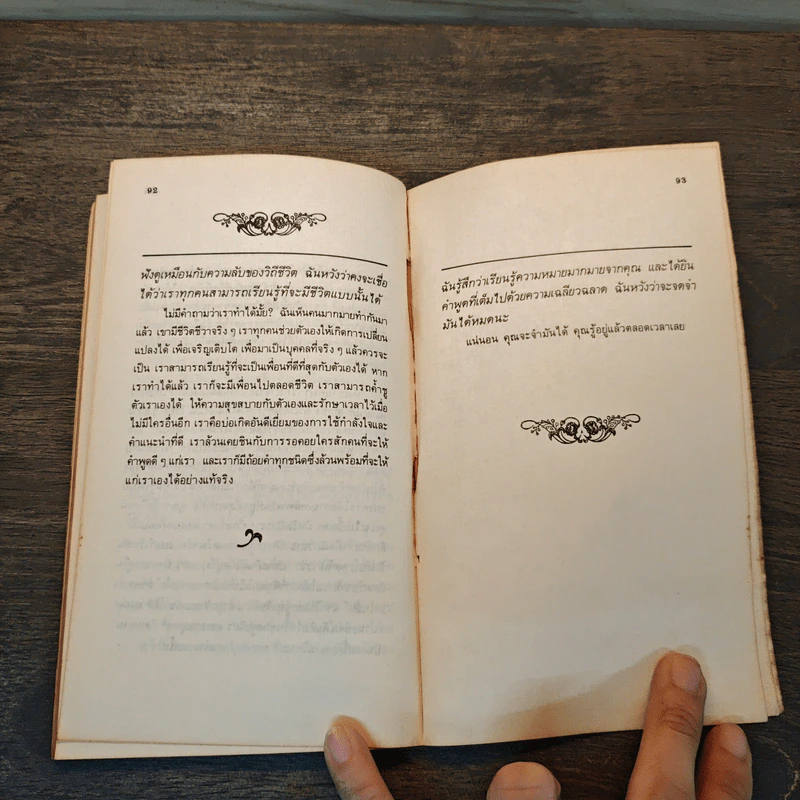 92
ฟังดูเหมือนกับความลับของวิถีชีวิต ฉันหวังว่าคงจะเชื่อ
ได้ว่าเราทุกคนสามารถเรียนรู้ที่จะมีชีวิตแบบนั้นได้
ไม่มีคำถามว่าเราทำได้มั้ย? ฉันเห็นคนมากมายทำกันมา
แล้ว เขามีชีวิตชีวาจริง ๆ เราทุกคนช่วยตัวเองให้เกิดการเปลี่ยน
แปลงได้ เพื่อเจริญเติบโต เพื่อมาเป็นบุคคลที่จริง ๆ แล้วควรจะ
เป็น เราสามารถเรียนรู้ที่จะเป็นเพื่อนที่ดีที่สุดกับตัวเองได้ หาก
เราทำได้แล้ว เราก็จะมีเพื่อนไปตลอดชีวิต เราสามารถค้ำชู
ตัวเราเองได้ ให้ความสุขสบายกับตัวเองและรักษาเวลาไว้เมื่อ
ไม่มีใครอื่นอีก เราคือบ่อเกิดอันดีเยี่ยมของการใช้กำลังใจและ
คำแนะนำที่ดี เราล้วนเคยชินกับการรอคอยใครสักคนที่จะให้
คำพูดดี ๆ แก่เรา และเราก็มีถ้อยคำทุกชนิดซึ่งล้วนพร้อมที่จะให้
แก่เราเองได้อย่างแท้จริง
93
ฉันรู้สึกว่าเรียนรู้ความหมายมากมายจากคุณ และได้ยิน
คำพูดที่เต็มไปด้วยความเฉลียวฉลาด ฉันหวังว่าจะจดจำ
มันได้หมดนะ
แน่นอน คุณจะจำมันได้ คุณรู้อยู่แล้วตลอดเวลาเลย